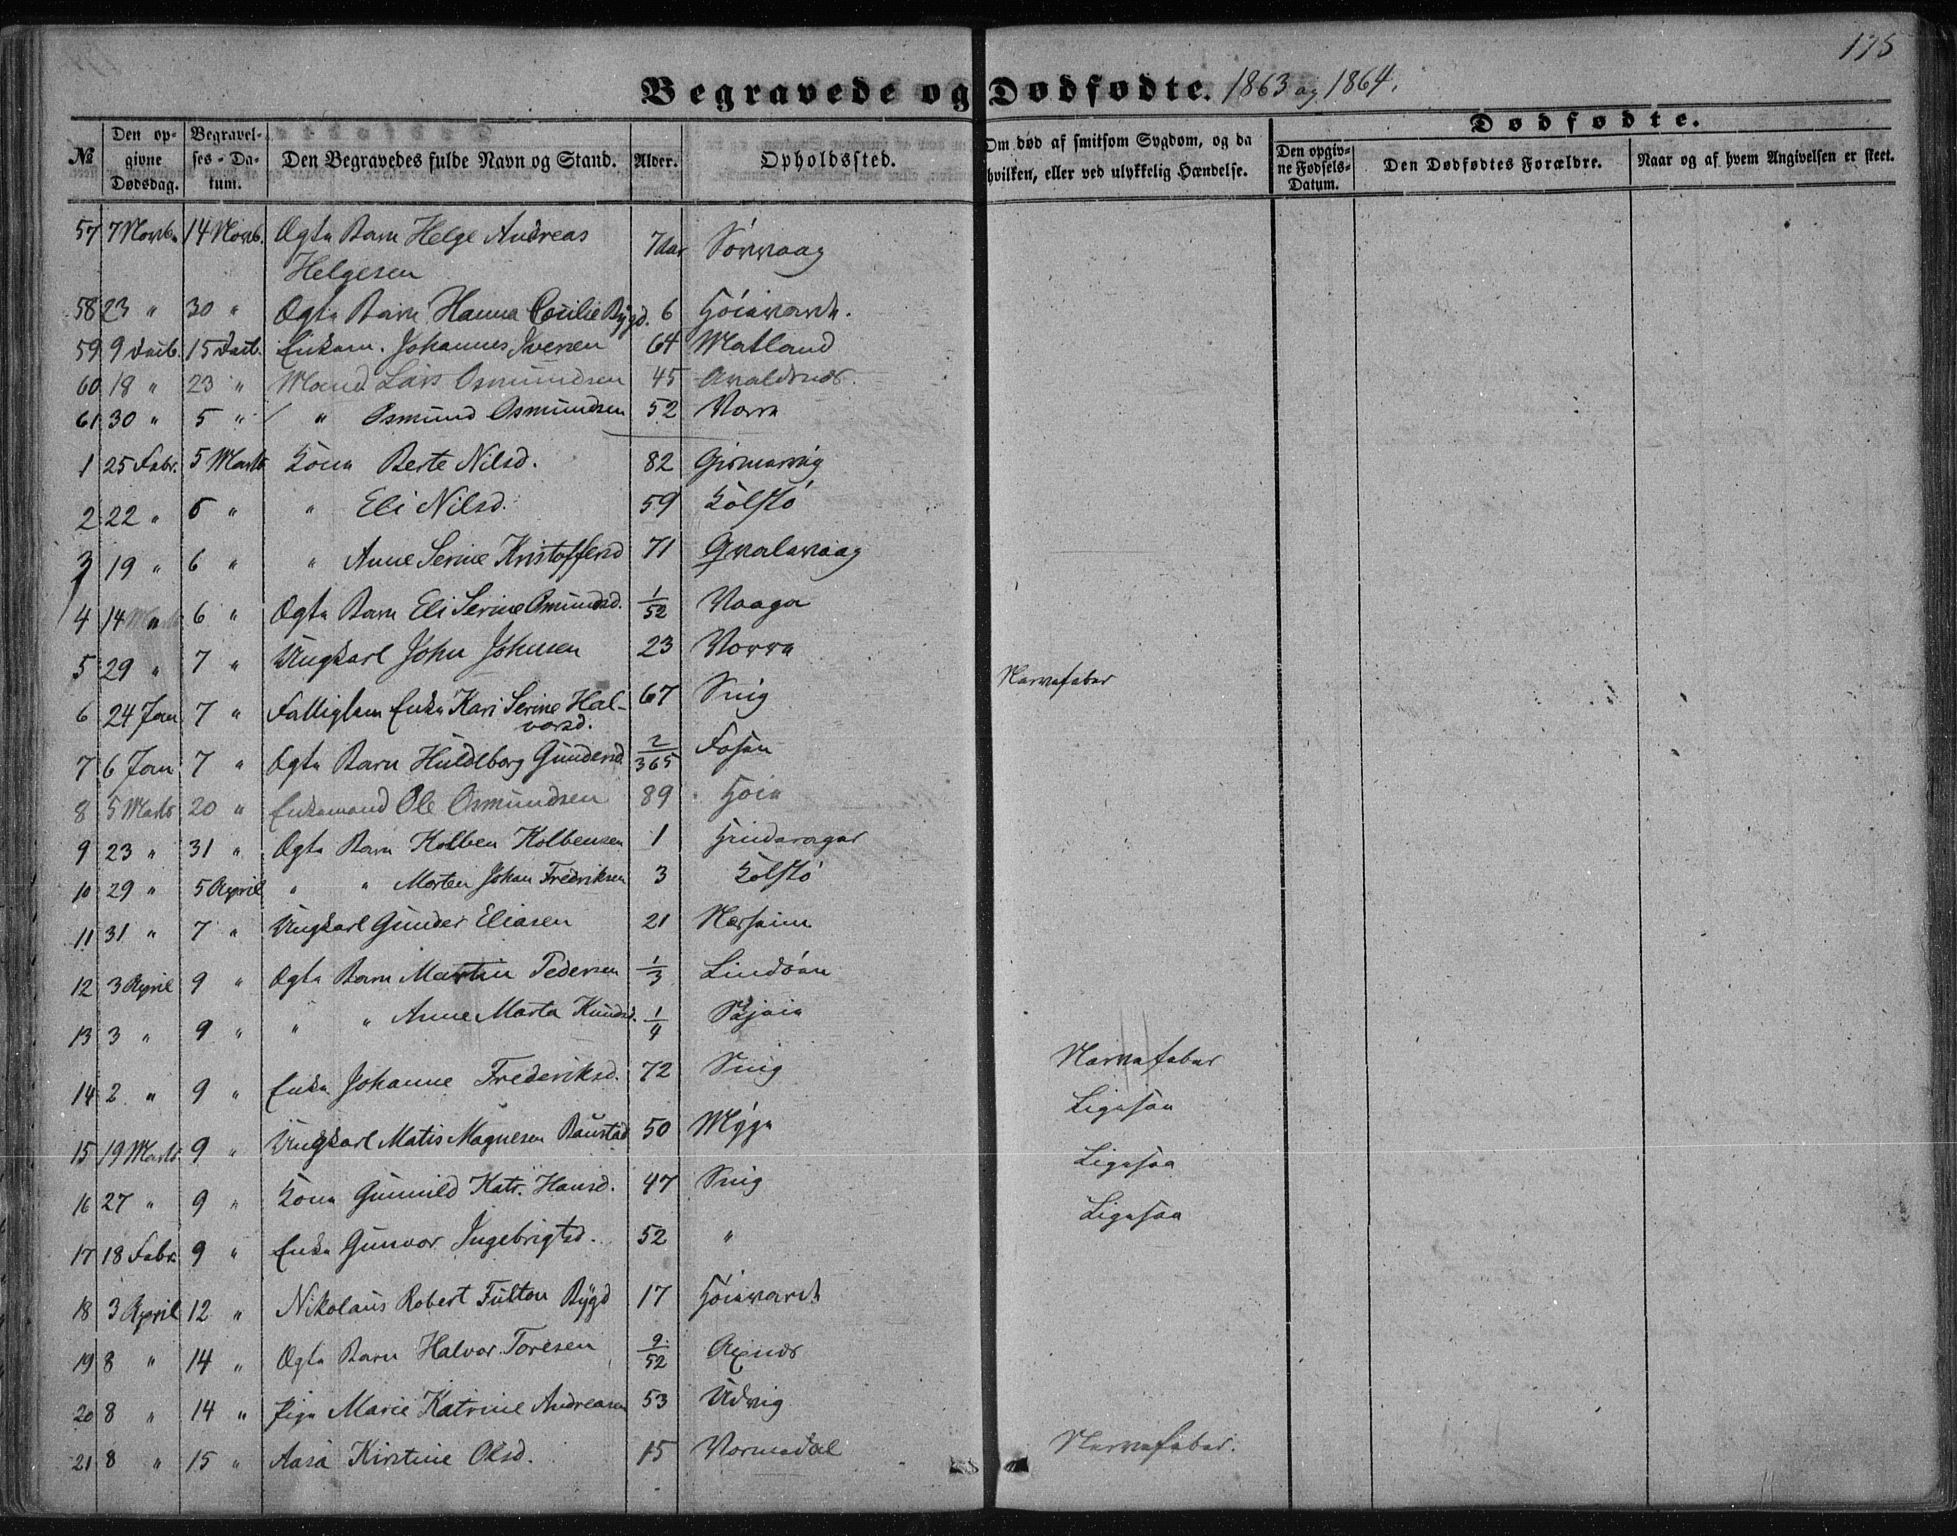 175
Begravede og Dødfødte. 1863 og 1864.
№ | Den opgivne Dødsdag. | Begravelses-Datum. | Den Begravedes fulde Navn og Stand. | Alder. | Opholdssted. | Om død af smitsom Sygdom, og da hvilken, eller ved ulykkelig Hændelse. | Dødfødte. | Den opgivne Fødsels-Datum. | Den Dødfødtes Forældre. | Naar og af hvem Angivelsen er skeet.
57 7 Novb. 14 Novb. Ægte Barn Helge Andreas 7 Aar Sørvaag
Helgesen
58 23 " 30 " Ægte Barn Hanna Cecilie Bygd. 6 Høievarde.
59 9 Decb. 15 Decb. Enkem. Johannes Iversen 64 Matland
60 18 " 23 " Mand Lars Osmundsen 45 Avaldsnes.
61 30 " 5 " / " Osmund Osmundsen 52 Vorre
1 25 Febr. 5 Marts Kone Berte Nilsd. 82 Gismervig
2 22 " 6 " " Eli Nilsd. 59 Kolstø
3 19 " 6 " " Anne Serine Kristoffersd 71 Qvalavaag
4 14 " 6 " Ægte Barn Eli Serine Osmundsd. 1/52 Vaage
5 29 " 7 " Ungkarl John Johnsen 23 Vorre
6 24 Jan 7 " Fattiglem Enke Kari Serine Hal- 67 Snig Nervefeber
vorsd.
7 6 Jan 7 " Ægte Barn Huldeborg Gundersd. 2/365 Fosen
8 5 Marts 20 " Enkemand Ole Osmundsen 89 Høie
9 23 " 31 " Ægte Barn Kolben Kolbensen 1
10 29 " 5 April " " Morten Johan Fredriksen 3 Kolstø
11 31 " 7 " Ungkarl Gunder Eliasen 21 Norheim
12 3 April 9 " Ægte Barn Martin Pedersen 1/3 Lindøen
13 3 " 9 " " " Anne Marta Knudsd. 1/4
14 2 " 9 " Enke Johanne Frederiksd. 72 Snig Nervefeber
15 19 Marts 9 " Ungkarl Matis Magnesen Baustad 50 Myge Ligesaa
16 27 " 9 " Kone Gunnild Katr. Hansd. 47 Snig Ligesaa
17 18 Febr. 9 " Enke Gunvor Ingebrigtsd. 52 " Ligesaa
18 3 April 12 " Nikolaus Robert Fulton Bygd 17 Høievarde
19 8 " 14 " Ægte Barn Halvor Toresen 9/52 Axnes
20 8 " 14 " Pige Marie Katrine Andreasen 53 Udvig
21 8 " 15 " Aasa Kirstine Olsd. 15 Vormedal Nervefeber.